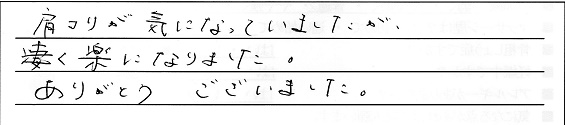 肩コリが気になっていましたが、
凄く楽になりました。
ありがとう ございました。